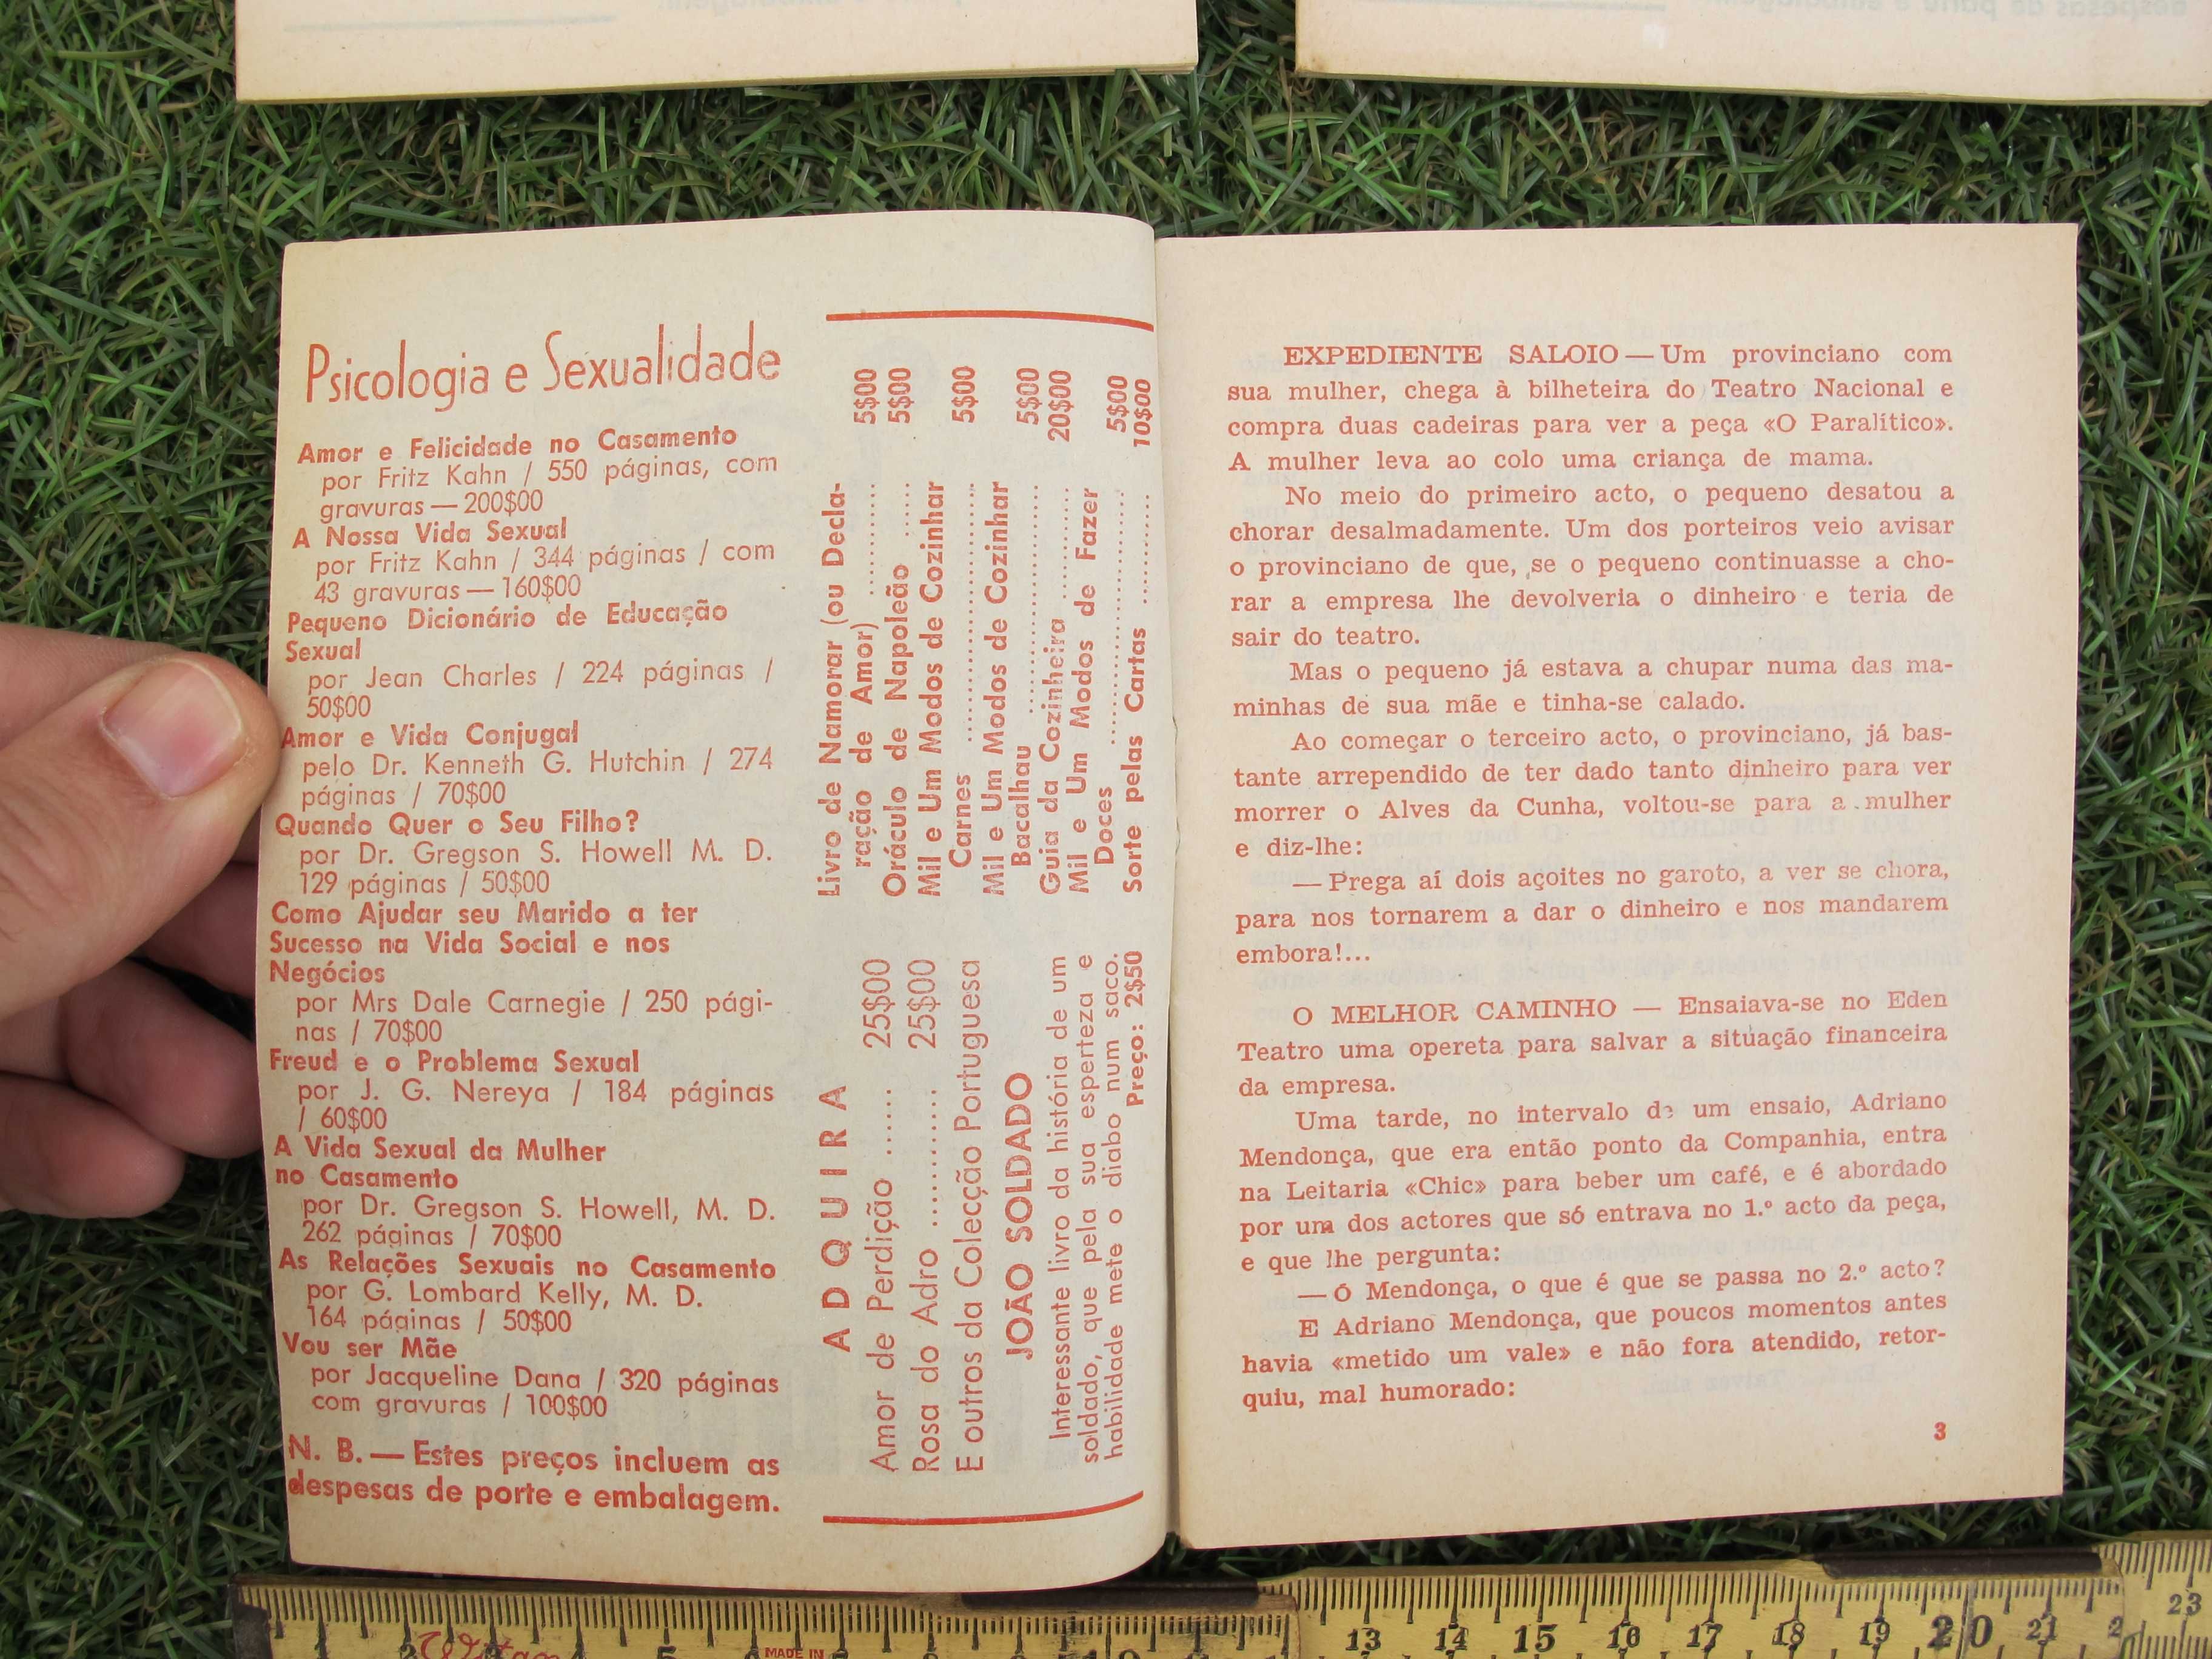 Psicologia e Sexualidade
Amor e Felicidade no Casamento
por Fritz Kahn / 550 páginas, com
gravuras — 200$00
A Nossa Vida Sexual
por Fritz Kahn / 344 páginas / com
43 gravuras — 160$00
Pequeno Dicionário de Educação
Sexual
por Jean Charles / 224 páginas /
50$00
Amor e Vida Conjugal
pelo Dr. Kenneth G. Hutchin / 274
páginas / 70$00
Quando Quer o Seu Filho?
por Dr. Gregson S. Howell M. D.
129 páginas / 50$00
Como Ajudar seu Marido a ter
Sucesso na Vida Social e nos
Negócios
por Mrs Dale Carnegie / 250 pági-
nas / 70$00
Freud e o Problema Sexual
por J. G. Nereya / 184 páginas
/ 60$00
A Vida Sexual da Mulher
no Casamento
por Dr. Gregson S. Howell, M. D.
262 páginas / 70$00
As Relações Sexuais no Casamento
por G. Lombard Kelly, M. D.
164 páginas / 50$00
Vou ser Mãe
por Jacqueline Dana / 320 páginas
com gravuras / 100$00
N. B. — Estes preços incluem as
despesas de porte e embalagem.
ADQUIRA
Amor de Perdição ....... 25$00
Rosa do Adro ............. 25$00
E outros da Colecção Portuguesa
JOÃO SOLDADO
Interessante livro da história de um
soldado, que pela sua esperteza e
habilidade mete o diabo num saco.
Preço: 2$50
Livro de Namorar (ou Decla-
ração de Amor) ............ 5$00
Oráculo de Napoleão ...... 5$00
Mil e Um Modos de Cozinhar
Carnes ........................... 5$00
Mil e Um Modos de Cozinhar
Bacalhau ........................ 5$00
Guia da Cozinheira ............ 20$00
Mil e Um Modos de Fazer
Doces ........................... 5$00
Sorte pelas Cartas ............ 10$00
EXPEDIENTE SALOIO — Um provinciano com
sua mulher, chega à bilheteira do Teatro Nacional e
compra duas cadeiras para ver a peça «O Paralítico».
A mulher leva ao colo uma criança de mama.
No meio do primeiro acto, o pequeno desatou a
chorar desalmadamente. Um dos porteiros veio avisar
o provinciano de que, se o pequeno continuasse a cho-
rar a empresa lhe devolveria o dinheiro e teria de
sair do teatro.
Mas o pequeno já estava a chupar numa das ma-
minhas de sua mãe e tinha-se calado.
Ao começar o terceiro acto, o provinciano, já bas-
tante arrependido de ter dado tanto dinheiro para ver
morrer o Alves da Cunha, voltou-se para a mulher
e diz-lhe:
— Prega aí dois açoites no garoto, a ver se chora,
para nos tornarem a dar o dinheiro e nos mandarem
embora!...
O MELHOR CAMINHO — Ensaiava-se no Eden
Teatro uma opereta para salvar a situação financeira
da empresa.
Uma tarde, no intervalo de um ensaio, Adriano
Mendonça, que era então ponto da Companhia, entra
na Leitaria «Chic» para beber um café, e é abordado
por um dos actores que só entrava no 1.º acto da peça,
e que lhe pergunta:
— Ó Mendonça, o que é que se passa no 2.º acto?
E Adriano Mendonça, que poucos momentos antes
havia «metido um vale» e não fora atendido, retor-
quiu, mal humorado:
3
MADE IN
13 14 15 16 17 18 19 20 21 23